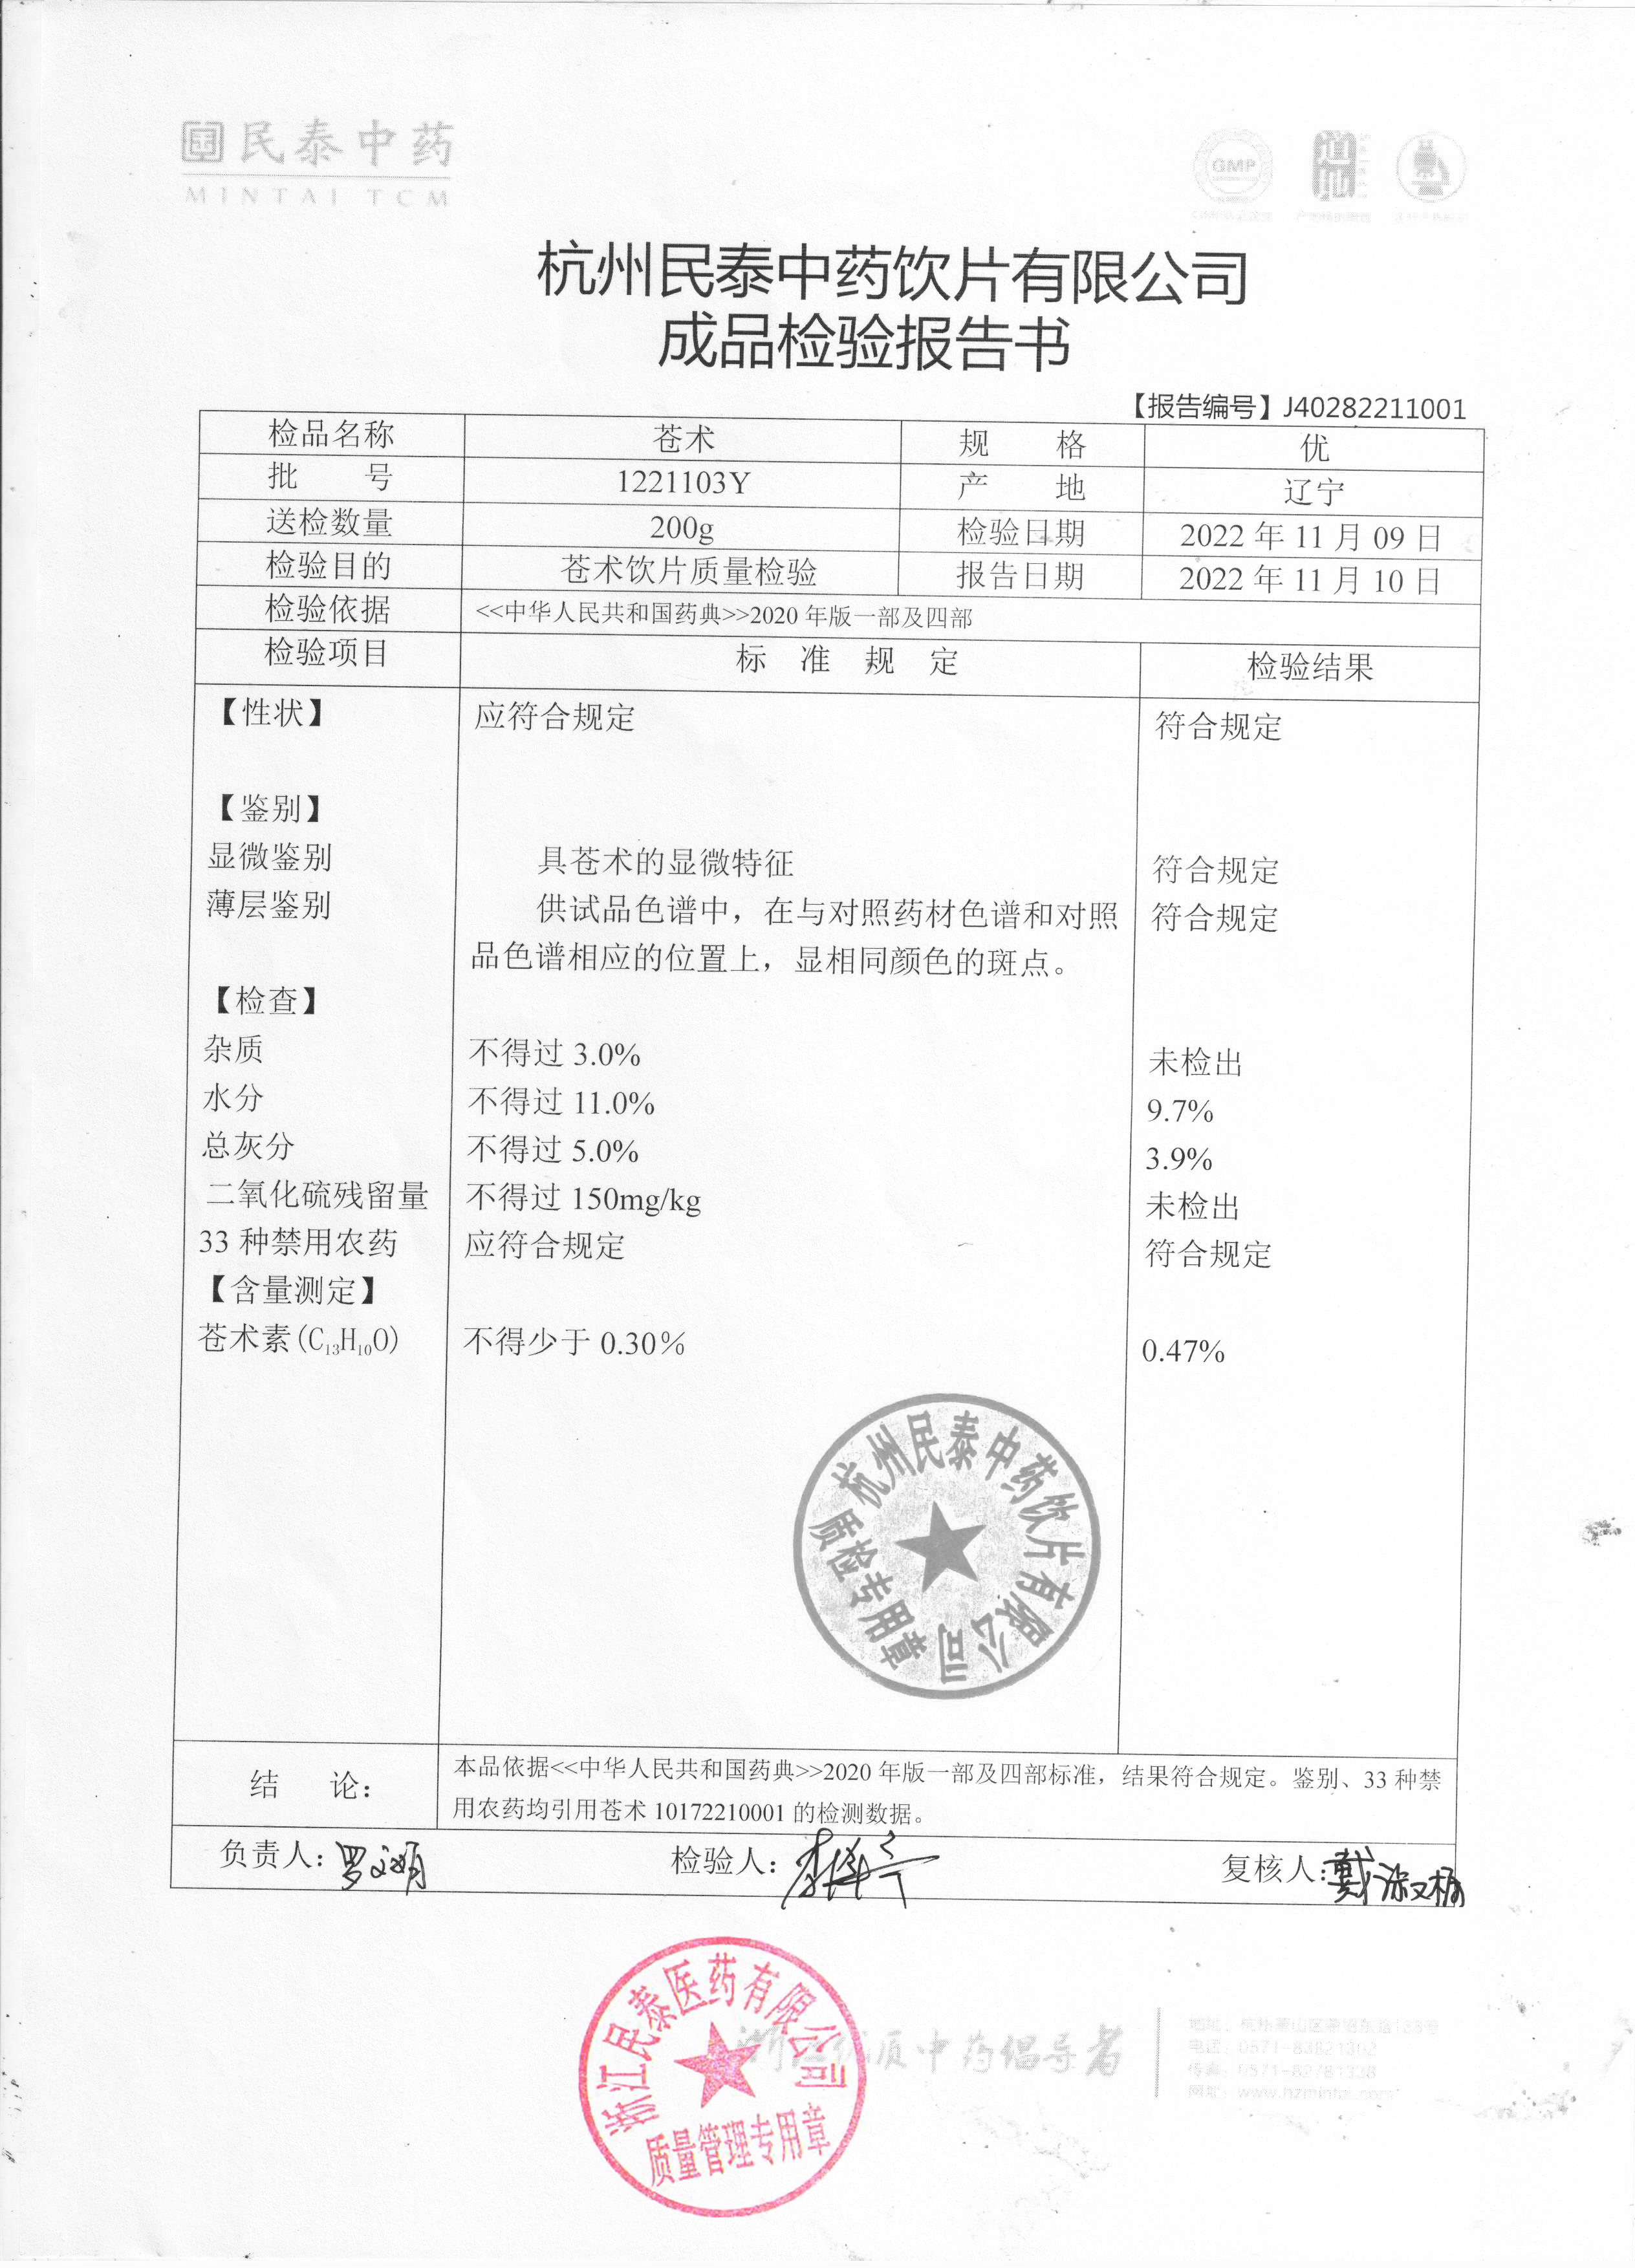 民泰中药
MINTAI TCM
GMP
道地
杭州民泰中药饮片有限公司
成品检验报告书
【报告编号】J40282211001
检品名称 苍术 规 格 优
批 号 1221103Y 产 地 辽宁
送检数量 200g 检验日期 2022 年 11 月 09 日
检验目的 苍术饮片质量检验 报告日期 2022 年 11 月 10 日
检验依据 <<中华人民共和国药典>>2020 年版一部及四部
检验项目 标 准 规 定 检验结果
【性状】 应符合规定 符合规定
【鉴别】
显微鉴别 具苍术的显微特征 符合规定
薄层鉴别 供试品色谱中，在与对照药材色谱和对照 符合规定
品色谱相应的位置上，显相同颜色的斑点。
【检查】
杂质 不得过 3.0% 未检出
水分 不得过 11.0% 9.7%
总灰分 不得过 5.0% 3.9%
二氧化硫残留量 不得过 150mg/kg 未检出
33 种禁用农药 应符合规定 符合规定
【含量测定】
苍术素(C₁₃H₁₀O) 不得少于 0.30% 0.47%
杭州民泰中药饮片有限公司
质检专用章
结 论： 本品依据<<中华人民共和国药典>>2020 年版一部及四部标准，结果符合规定。鉴别、33 种禁
用农药均引用苍术 10172210001 的检测数据。
负责人： 检验人： 复核人：戴淑
浙江民泰医药有限公司
质量管理专用章
质中药倡导者
电话：0571-83821302
传真：0571-82781338